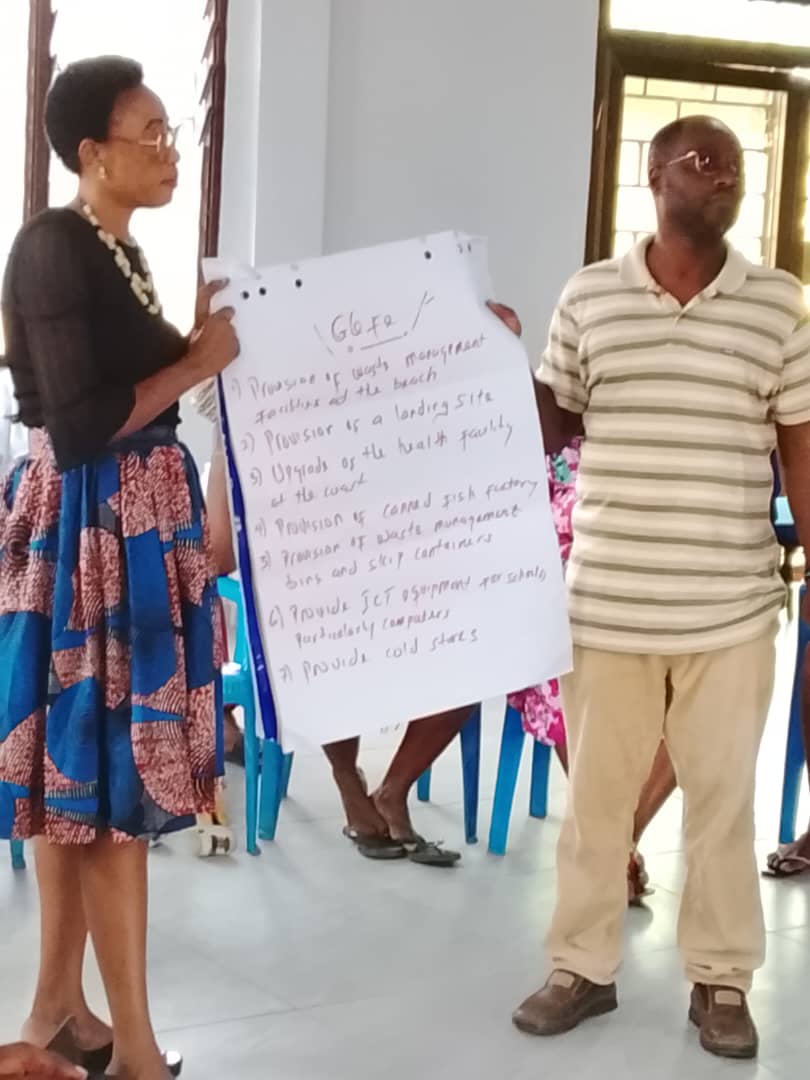 Gbefe
1) Provision of waste management
Facilities at the beach
2) Provision of a landing site
3) Upgrade of the health facility
at the coast
4) Provision of canned fish factory
5) Provision of waste management
bins and skip containers
6) Provide ICT equipment for schools
particularly computers
7) Provide cold stores